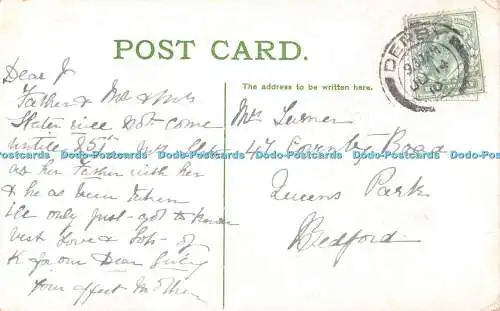 POST CARD.
The address to be written here.
DERBY
Dear J
Father & Mr & Mrs
Slater will not come
untill 25st Mrs Slater
as her Father with her
& he as been taken
ill only just got to know
best Love & lots of
K from our Dear
your affect Mother
Mrs Turner
47 Road
Queens Park
Bedford
Dodo-Postcards Dodo-Postcards Dodo-Postcards Dodo-Postcards Dodo-Postcards